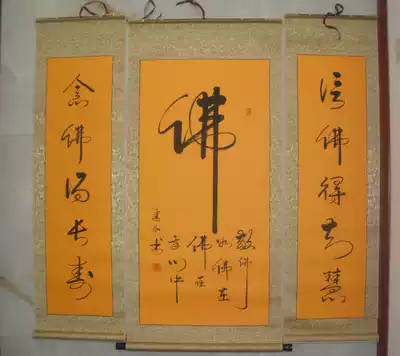 信佛得知慧
佛
敬佛
如佛在
佛在
中
书
念佛得长寿